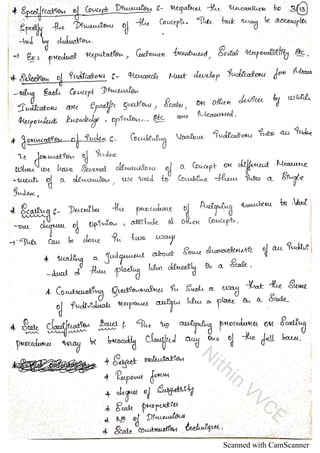 * Specification of Concept Dimensions :- requires the researcher to 3/13
Specify the Dimensions of the Concepts. This task may be accomplis
-hed by deduction.
→ Ex: product reputation, Customer treatment, Social responsibility etc.
* Selection of Indicators :- research Must develop Indicators for Meas
-uring Each Concept Dimension
Indicators are Specific question, Scales, or other devices by which
respondents knowledge, opinion... etc are Measured.
* formation of Index :- Combining Various Indicators Into an Index
i.e formation of Index
When we have Several dimensions of a Concept or different Measure
-ments of a dimension, we need to Combine them Into a Single
Index.
* Scaling :- Describes the procedures of Assigning numbers to Vari
-ous degrees of opinion, attitude & other Concepts.
→ This Can be done In two ways
* making a Judgement about Some characteristic of an Individ
-ual & then placing him directly on a Scale.
* Constructing Questionnaires In Such a way that the Score
of Individuals responses assigns him a place on a Scale.
* Scale Classification Bases : The no assigning procedures or Scaling
procedures may be broadly Classified any one of the foll bases.
* Subject orientation
* Response form
* degree of Subjectivity
* Scale properties
* No of Dimensions
* Scale Construction technique.
Nithin VVCE
Scanned with CamScanner